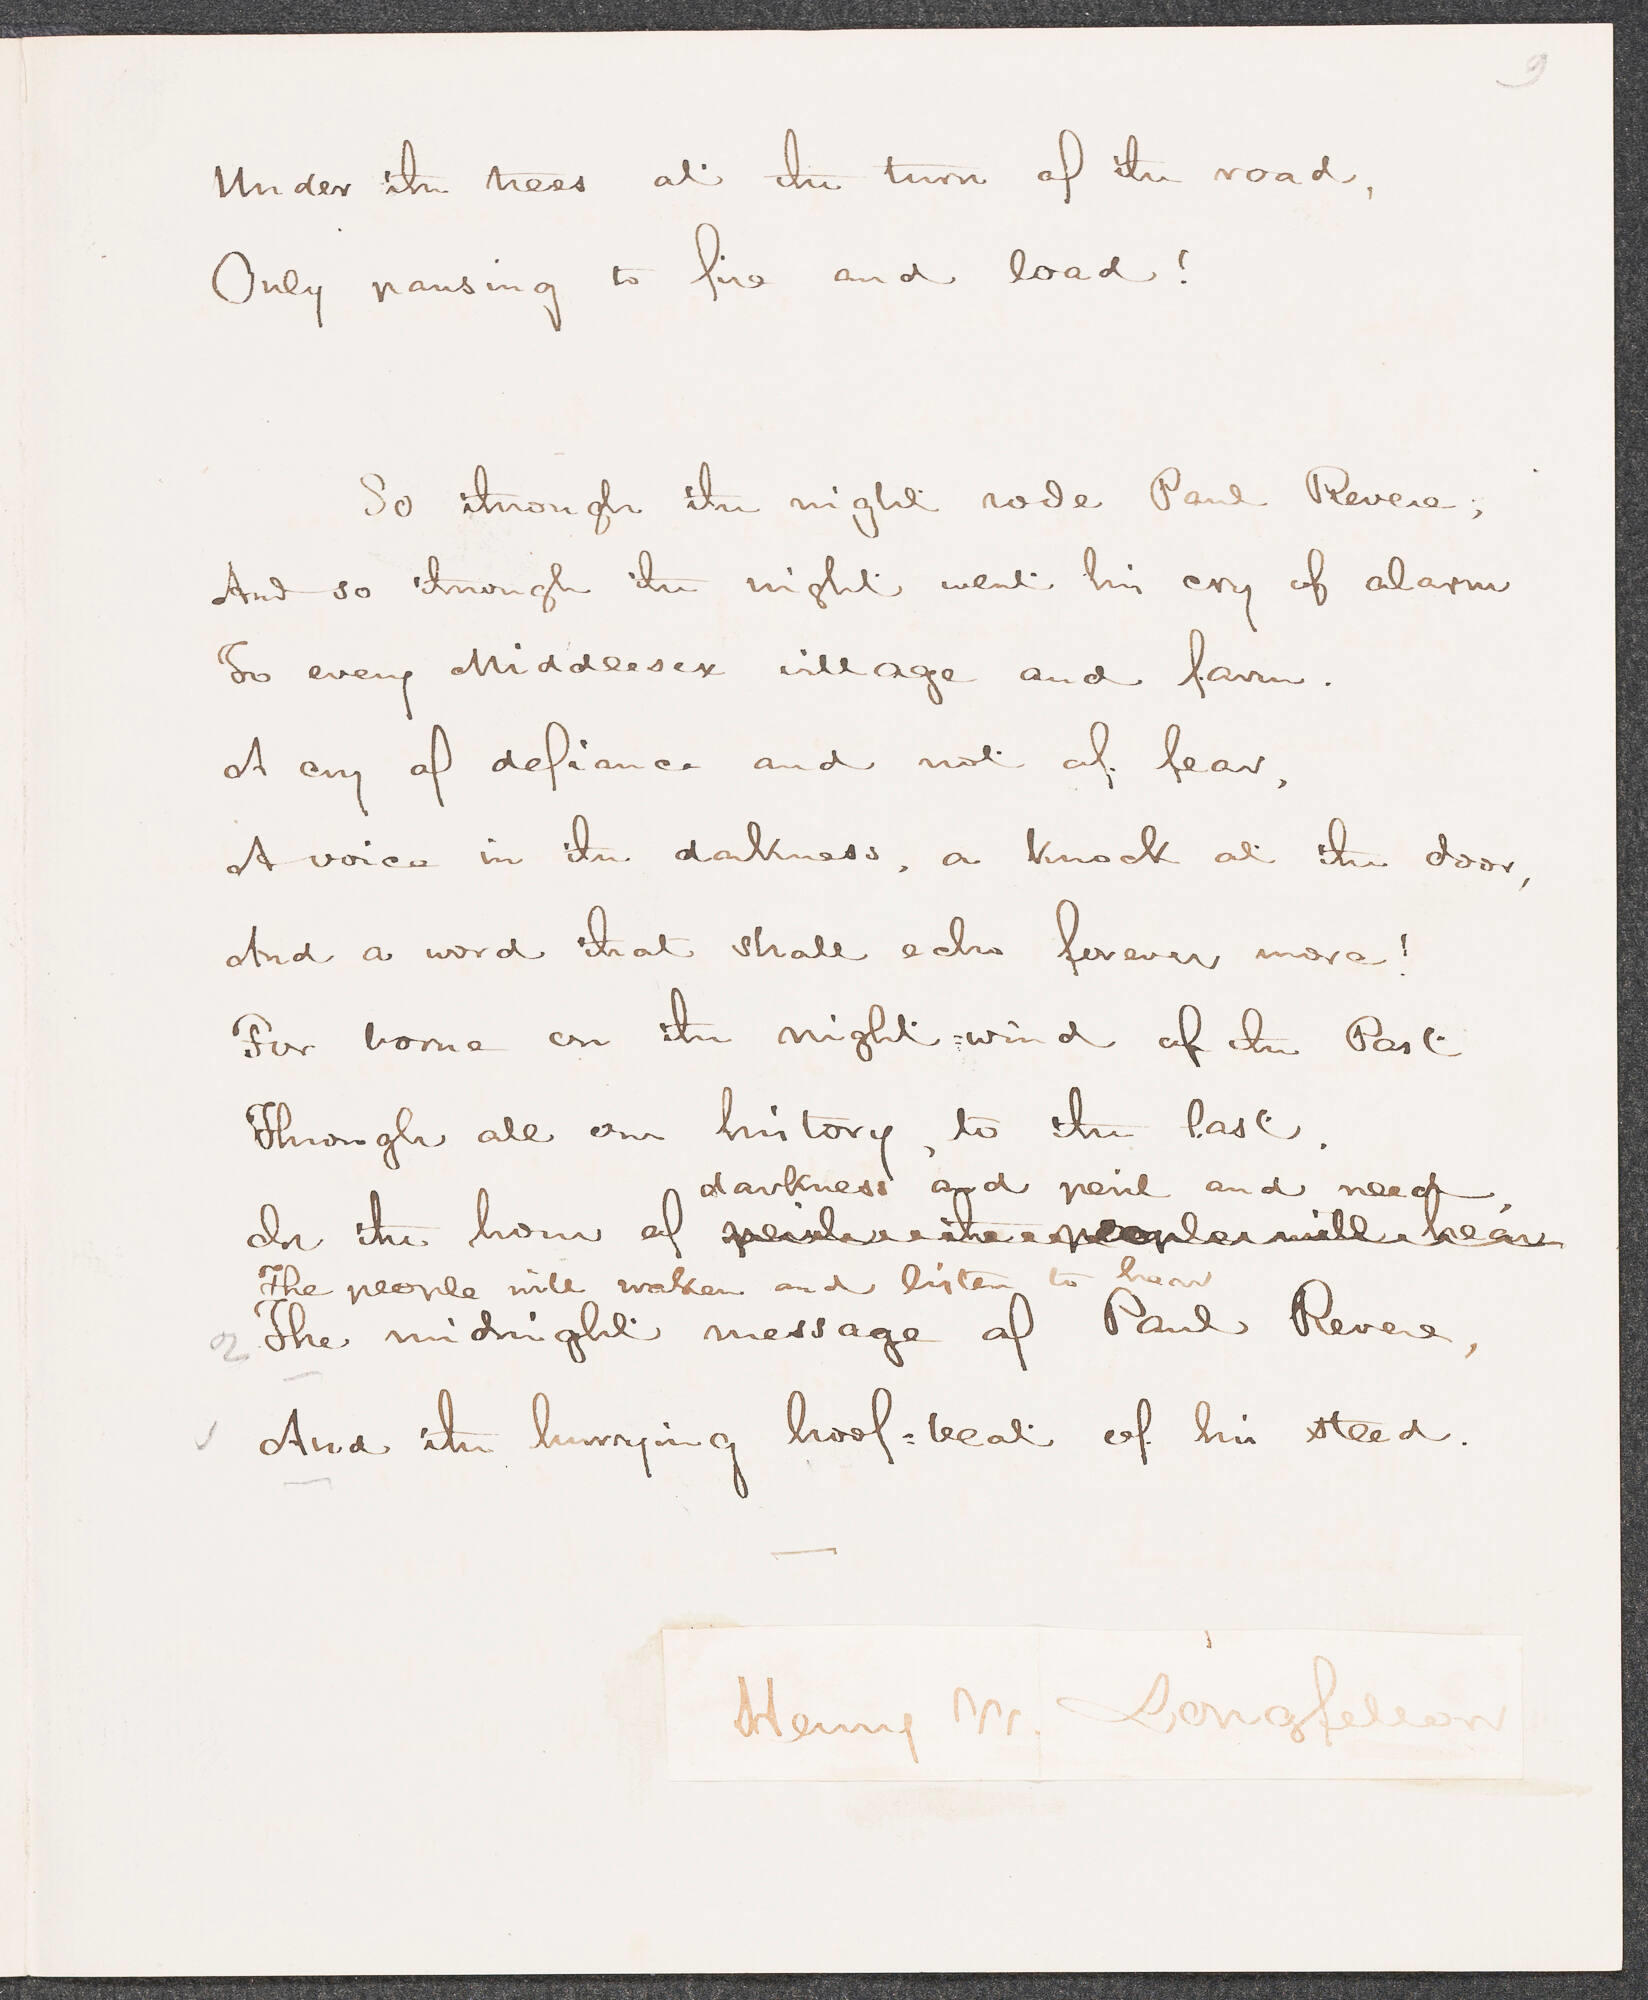 9
Under the trees at the turn of the road,
Only pausing to fire and load!
So through the night rode Paul Revere;
And so through the night went his cry of alarm
To every Middlesex village and farm.
A cry of defiance and not of fear,
A voice in the darkness, a knock at the door,
And a word that shall echo forever more!
For borne on the night-wind of the Past
Through all our history, to the last.
darkness and peril and need,
In the hour of peril the people will hear
The people will waken and listen to hear
2 The midnight message of Paul Revere,
1 And the hurrying hoof-beat of his steed.
Henry W. Longfellow